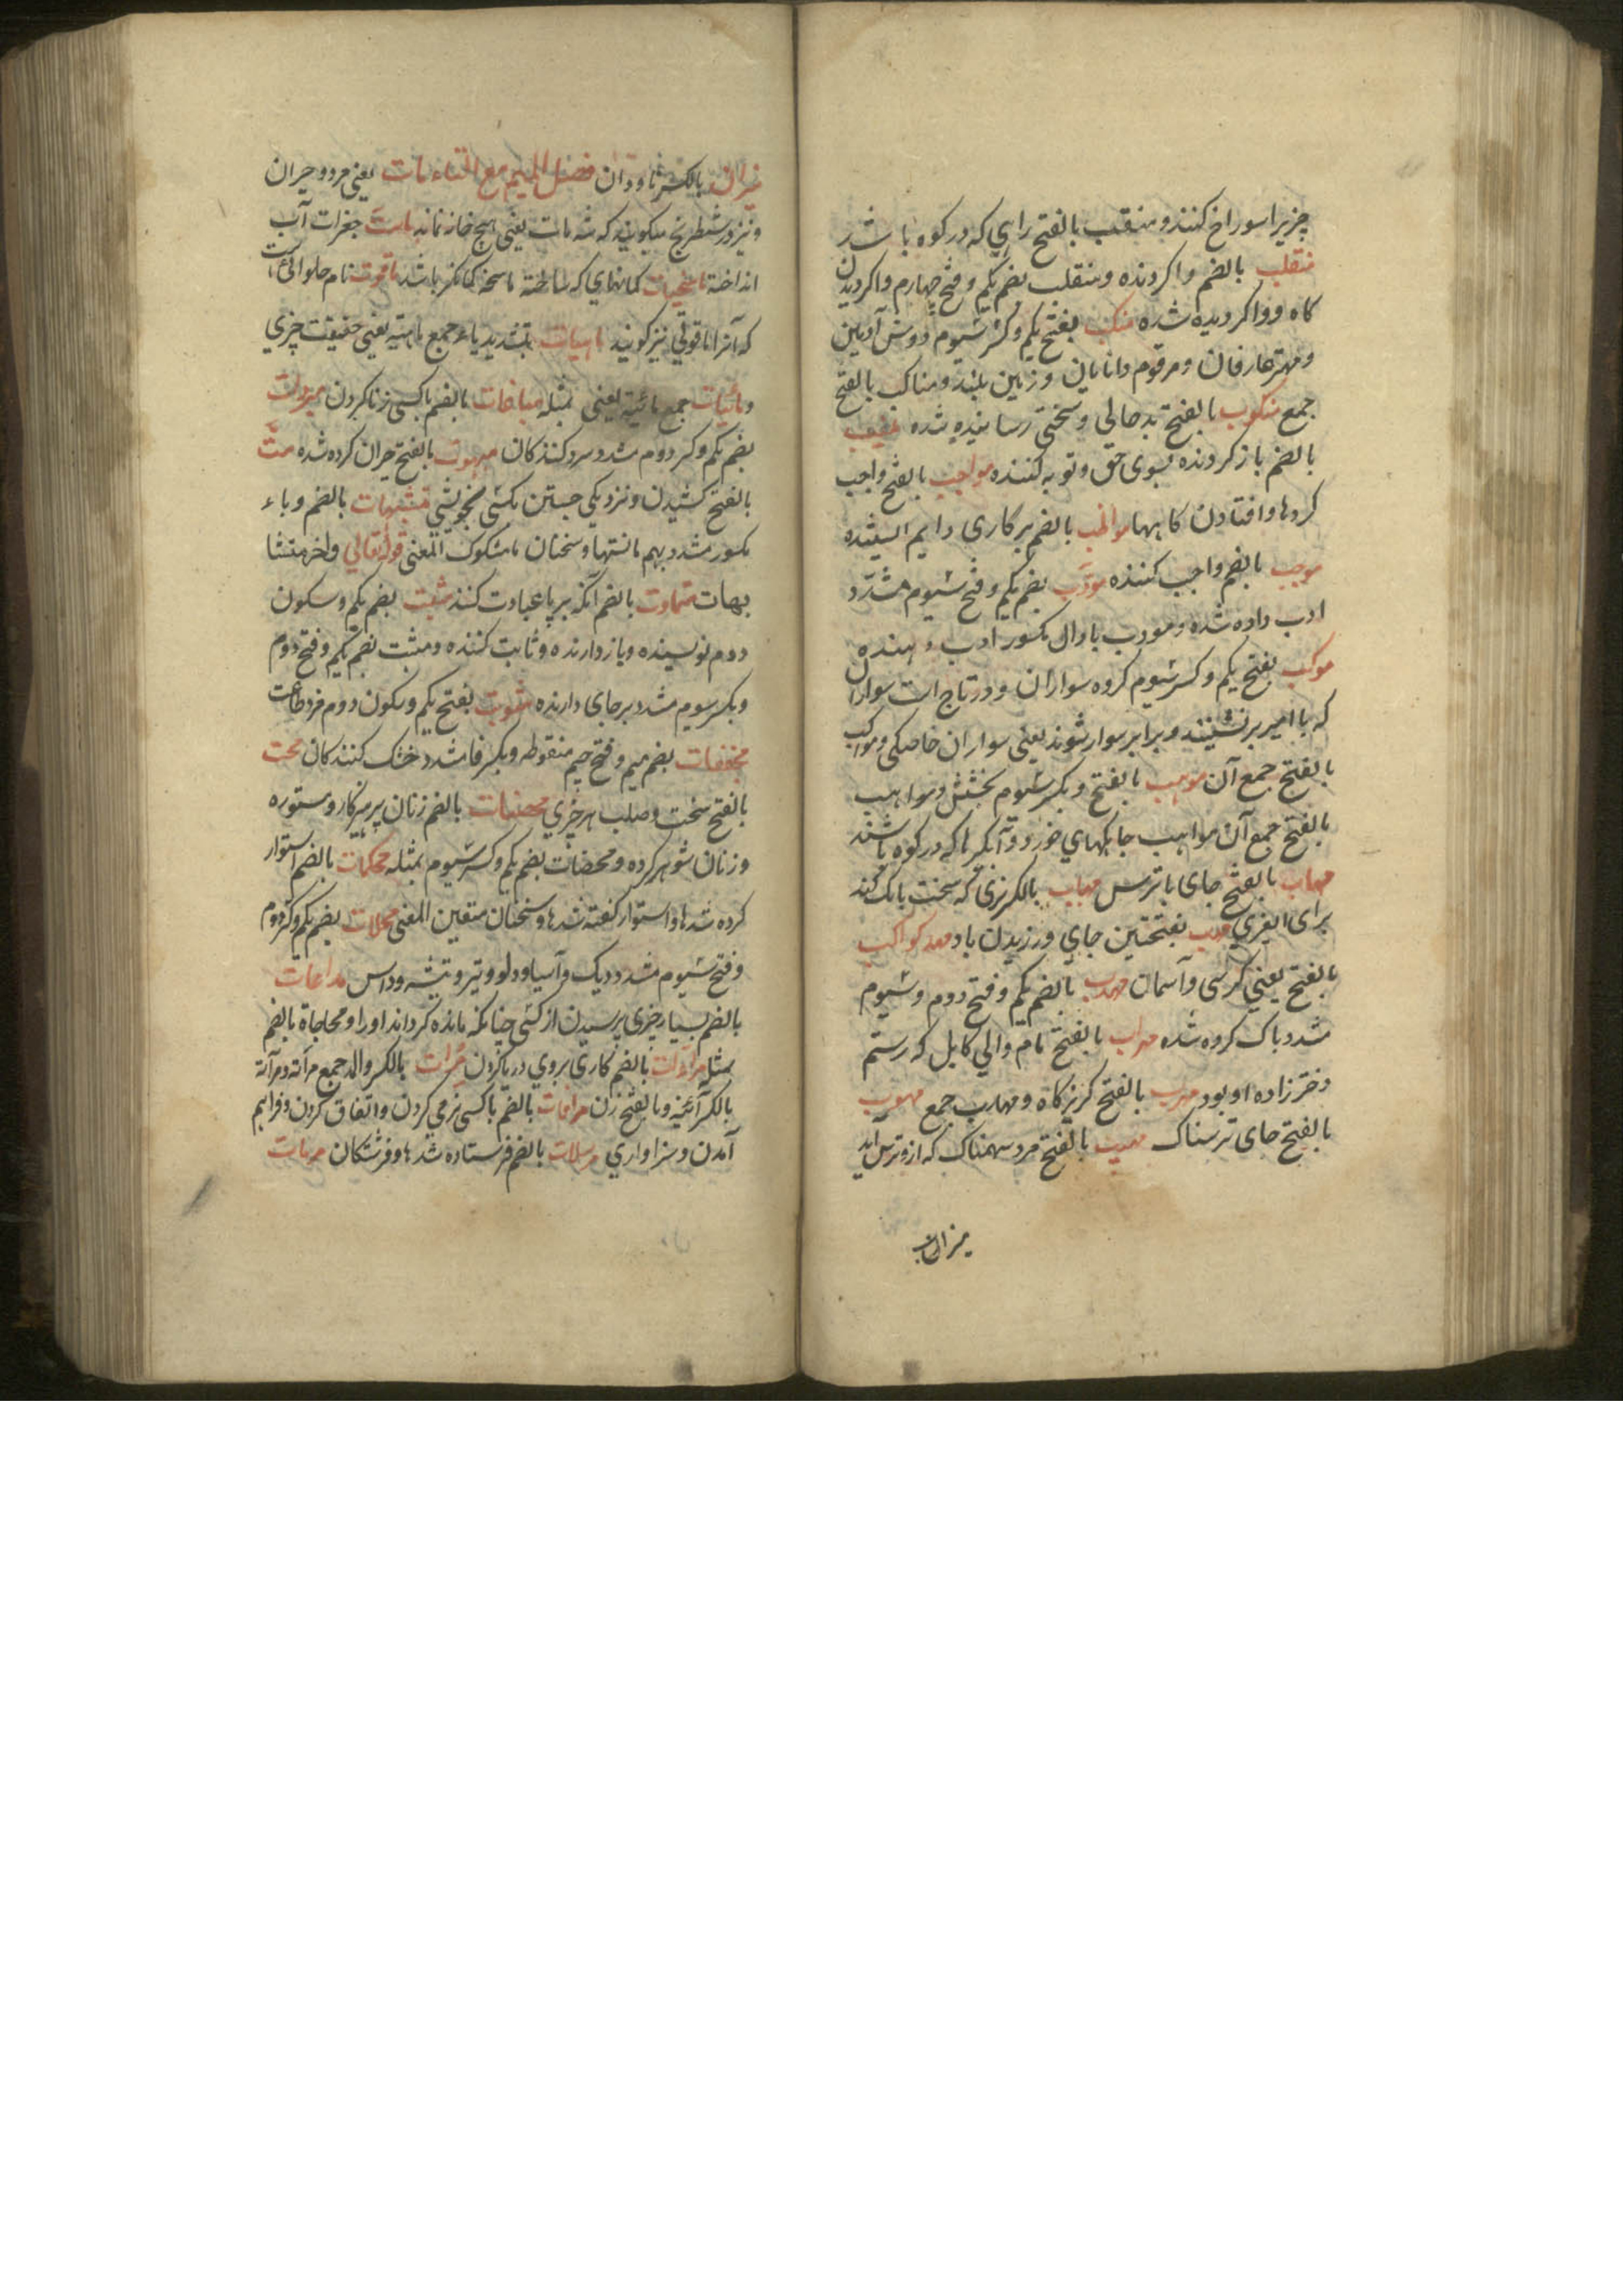 چیزیرا سوراخ کنند و منقب بالفتح راهی که در کوه باشد
منقلب بالضم واکردنده و منقلب بضم یکم و فتح چهارم واکردیدن
کاه و واکردیده شده منکب بفتح یکم و کسر سیوم دوش آدمین
و مهتر عارفان و مرقوم دانایان و زمین بلند و مناکب بالفتح
جمع منکوب بالفتح بد حالی و سختی رسانیده شده منیب
بالضم باز کردنده بسوی حق و توبه کننده مواجب بالفتح واجب
کردها و افتادن کاهها مواظب بالضم بر کاری دایم ایستنده
موجب بالضم واجب کننده مودب بضم یکم و فتح سیوم مشدد
ادب داده شده و مودب با دال مکسور ادب دهنده
موکب بفتح یکم و کسر سیوم کروه سواران و در تاج است سواران
که با امیر برنشینند و برابر سوار شوند یعنی سواران خاصکی و مواکب
بالفتح جمع آن موهب بالفتح و بکسر سیوم بخشش و مواهب
بالفتح جمع آن مواهب جایکهای خورد و آبکیرها که در کوه باشند
مهاب بالفتح جای باترس مهاب بالکسر نری که سخت بانک کند
برای مهب بفتحتین جای ورزیدن باد مهد کواکب
بالفتح یعنی کرسی و آسمان مهذب بالضم یکم و فتح دوم و سیوم
مشدد پاک کروه شده مهراب بالفتح نام والی کابل که رستم
دختر زاده او بود مهرب بالفتح کریزکاه و مهارب جمع مهوب
بالفتح جای ترسناک مهیب بالفتح مرد سهمناک که ازو ترس آید
میزاب
میزاب بالکسر ناودان فصل المیم مع التاء مات یعنی مرد و حیران
و نیز در شطرنج میکویند که شه مات یعنی هیچ خانه نماند ماست جغرات آب
انداخته کمانهای که ساخته ماسخه کمانکر باشد ماقوت نام حلوائی است
که آنرا ماقوتی نیز کویند ماهیات بتشدید یاء جمع ماهیه یعنی حقیقت چیزی
و مائیات جمع مائیه یعنی بمثله مباضات بالضم باکسی زنا کردن مبردت
بضم یکم و کسر دوم مشدد سرد کنندکان مبهوت بالفتح حیران کرده شده مت
بالفتح کشیدن و نزدیکی جستن بکسی بخویشی متشبهات بالضم و باء
مکسور مشدد بهم مانستها و سخنان مشکوک المعنی قوله تعالی واخر متشا
بهات متماوت بالضم آنکه بریا عبادت کند مثبت بضم یکم و سکون
دوم نویسنده و بازدارنده و ثابت کننده و مثبت بضم یکم و فتح دوم
و بکسر سیوم مشدد برجای دارنده مثوبت بفتح یکم و سکون دوم مزد طاعت
مجففات بضم میم و فتح جیم منقوطه و بکسر فا مشدد خشک کنندکان محت
بالفتح سخت و صلب هر چیزی محصنات بالضم زنان پرهیزکار و مستوره
و زنان شوهر کرده و محصنات بضم یکم و کسر سیوم بمثله محکمات بالضم استوار
کرده شدها و استوار کفته شدها و سخنان متعین المعنی محلات بضم یکم و کسر دوم
و فتح سیوم مشدد دیک و آسیا و دلو و تبر و تیشه و داس مداعات
بالضم بسیار چیزی پرسیدن از کسی چنانکه مانده کرداند او را و محاجاة بالضم
بمثله مراءات بالضم کاری بروی و ریا کردن مرآت بالکسر والمد جمع مرآته و مرآته
بالکسر آئینه و بالفتح زن مرافات بالضم باکسی نرمی کردن و اتفاق کردن و فراهم
آمدن و سزاواری مرسلات بالضم فرستاده شدها و فرشتکان مرمات